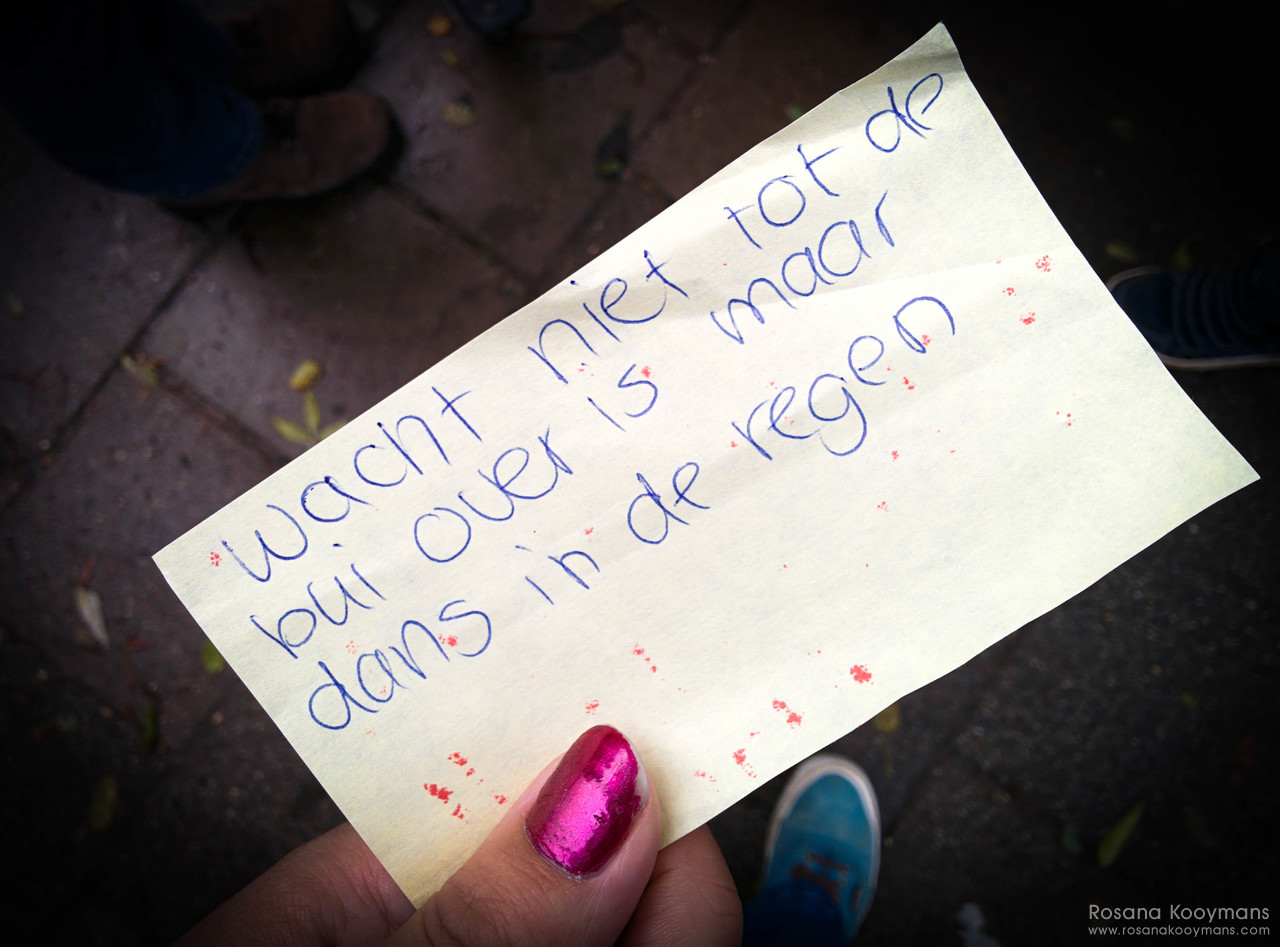 wacht niet tot de
bui over is maar
dans in de regen
Rosana Kooymans
www.rosanakooymans.com